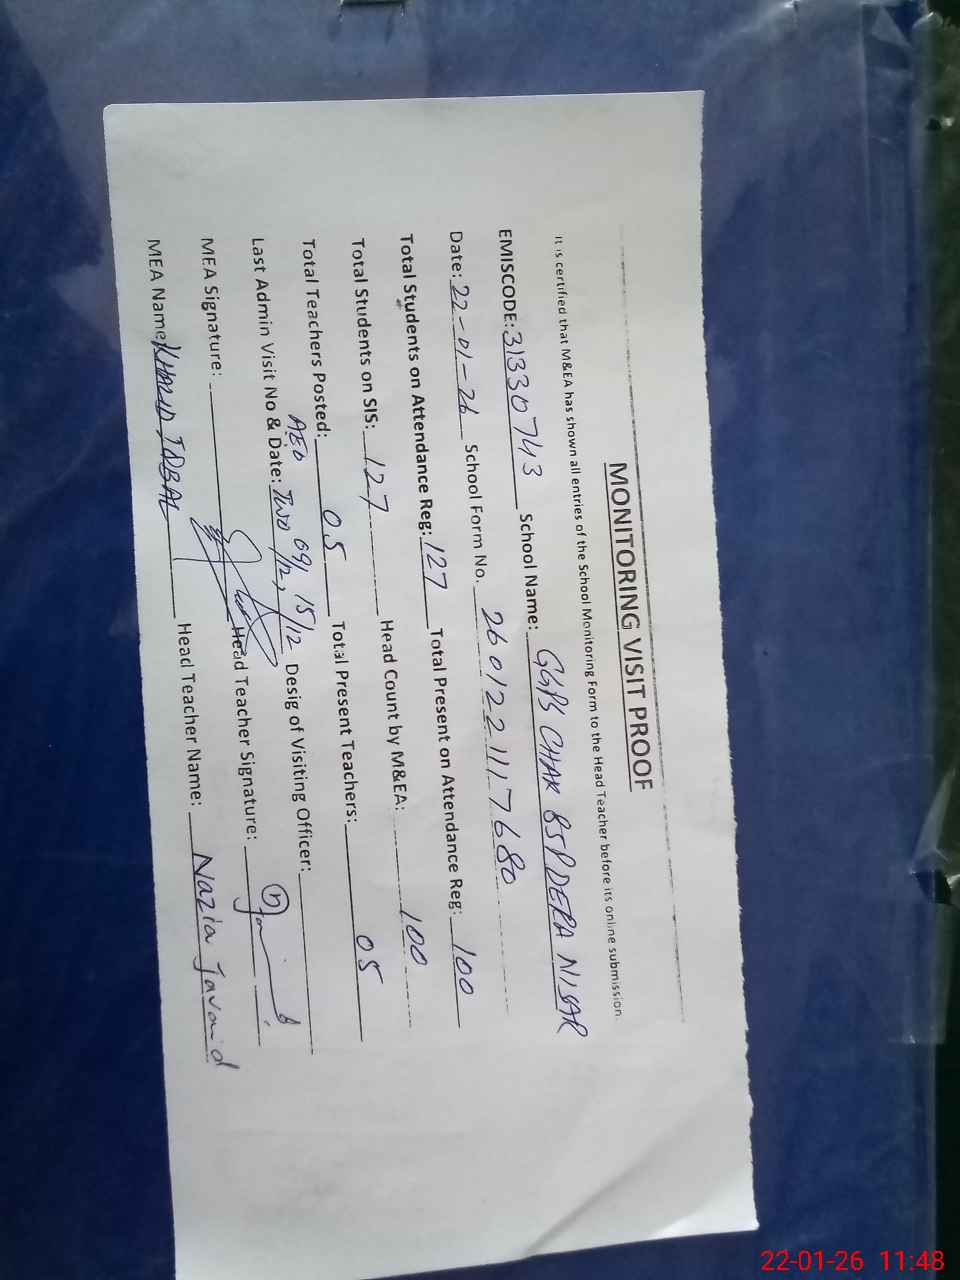 MONITORING VISIT PROOF
It is certified that M&EA has shown all entries of the School Monitoring Form to the Head Teacher before its online submission.
EMISCODE: 31330743 School Name: GGPS CHAK 85P DERA NISAR
Date: 22-01-26 School Form No. 2601221117680
Total Students on Attendance Reg: 127 Total Present on Attendance Reg: 100
Total Students on SIS: 127 Head Count by M&EA: 100
Total Teachers Posted: 05 Total Present Teachers: 05
AEO
Last Admin Visit No & Date: Two 09/12, 15/12 Desig of Visiting Officer:
MEA Signature: Head Teacher Signature:
MEA Name: KHALID IQBAL Head Teacher Name: Nazia Javaid
22-01-26 11:48